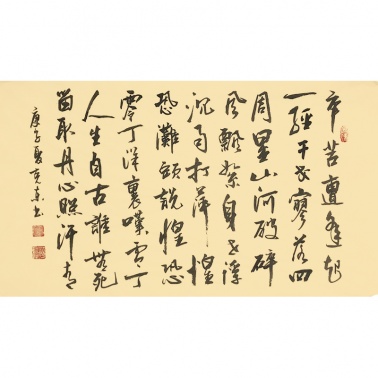 辛苦遭逢起
一經干戈寥落四
周星山河破碎
風飄絮身世浮
沉雨打萍惶
恐灘頭說惶恐
零丁洋裏嘆零丁
人生自古誰無死
留取丹心照汗青
庚子夏書